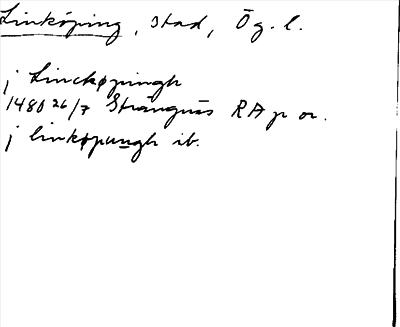 Linköping, stad, Ög. l.
j Linckøpingh
1480 26/7 Strängnäs RAp or.
j linkøpungh ib.